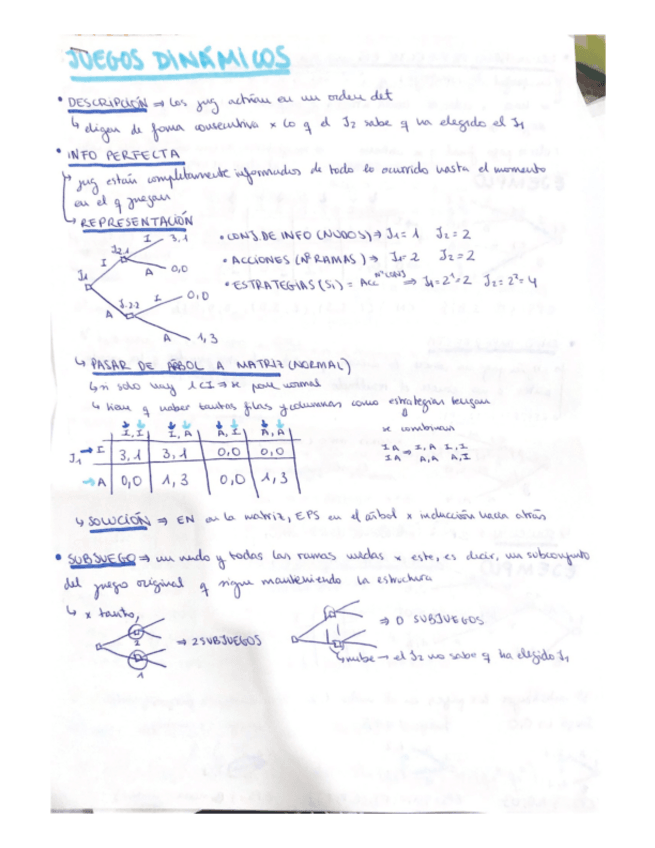 JUEGOS DINÁMICOS
• DESCRIPCIÓN ⇒ Los jug actúan en un orden det
↳ eligen de forma consecutiva x lo q el J2 sabe q ha elegido el J1
• INFO PERFECTA
jug están completamente informados de todo lo ocurrido hasta el momento
en el q juegan
↳ REPRESENTACIÓN
J1 I A
J2.1 I 3,1
A 0,0
J.22 I 0,0
A 1,3
• CONJ. DE INFO (NUDOS) ⇒ J1 = 1 J2 = 2
• ACCIONES (Nº RAMAS) ⇒ J1 = 2 J2 = 2
• ESTRATEGIAS (Si) = Acc^nº CONJ ⇒ J1 = 2^1 = 2 J2 = 2^2 = 4
↳ PASAR DE ÁRBOL A MATRIZ (NORMAL)
↳ si solo hay 1 CI ⇒ se pone normal
↳ tiene q haber tantas filas y columnas como estrategias tengan
se combinan
I A ⇒ I, A I, I
I A A, A A, I
I, I I, A A, I A, A
J1 → I 3,1 3,1 0,0 0,0
→ A 0,0 1,3 0,0 1,3
↳ SOLUCIÓN ⇒ EN en la matriz, EPS en el árbol x inducción hacia atrás
• SUBJUEGO ⇒ un nudo y todas las ramas unidas x este, es decir, un subconjunto
del juego original q sigue manteniendo la estructura
↳ x tanto,
2
1
⇒ 2 SUBJUEGOS
⇒ 0 SUBJUEGOS
↳ nube → el J2 no sabe q ha elegido J1